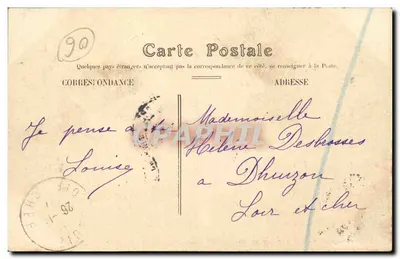 90
Carte Postale
Quelques pays étrangers n'acceptant pas la correspondance de ce côté, se renseigner à la Poste.
CORRESPONDANCE
ADRESSE
Je pense à toi
Louise
Mademoiselle
Hélène Desbrosses
a Dhuizon
Loir et cher
CPARTPHIL
26